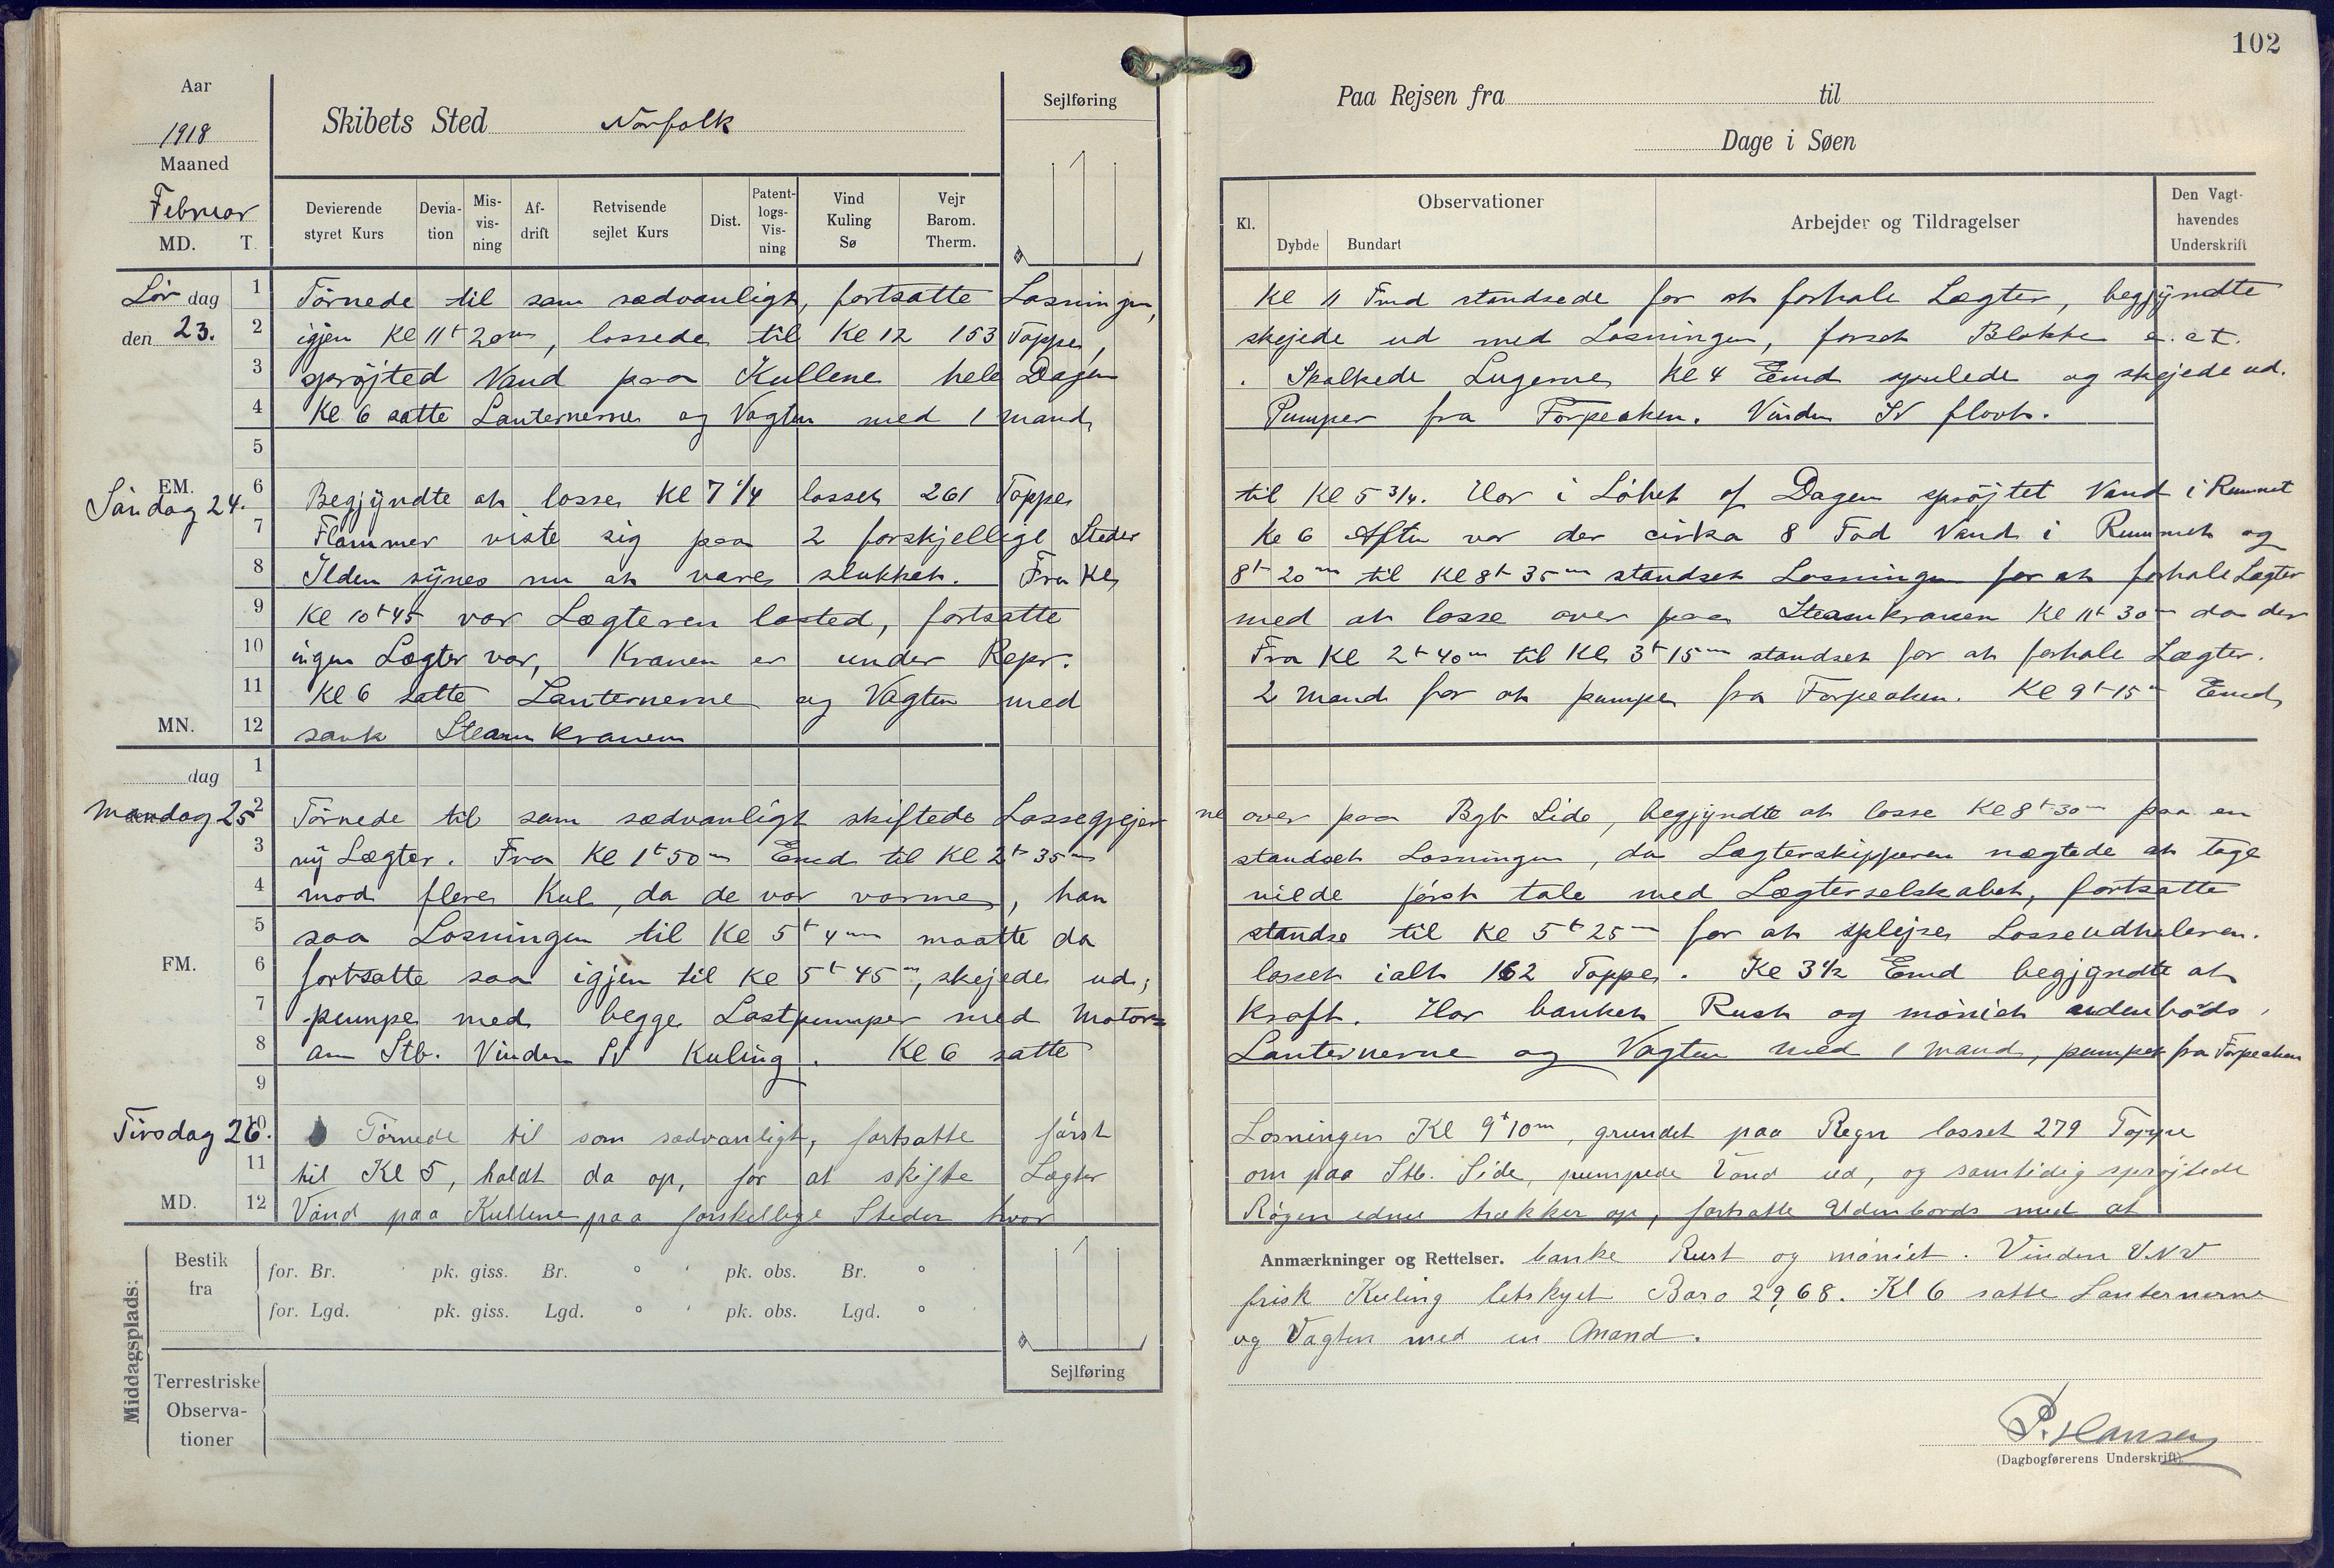 102
Aar
1918
Maaned
Februar
MD. T.
Skibets Sted Norfolk
Sejlføring
Paa Rejsen fra til
Dage i Søen
Devierende styret Kurs
Devia-tion
Mis-vis-ning
Af-drift
Retvisende sejlet Kurs
Dist.
Patent-logs-Vis-ning
Vind Kuling Sø
Vejr Barom. Therm.
Kl.
Observationer
Dybde Bundart
Arbejder og Tildragelser
Den Vagt-havendes Underskrift
Lör dag 1 Törnede til som sædvanligt, fortsatte Losningen, Kl 11 Fmd standsede for at forhale Lægter, begyndte
den 23. 2 igjen Kl 11t 20m, lossede til Kl 12 153 Toppe, skejede ud med Losningen, Blokke
3 spröjted Vand paa Kullene hele Dagen . Skalkede Lugerne Kl 4 Emd spulede og skejede ud.
4 Kl 6 satte Lanternerne og Vagten med 1 mand, Pumper fra Forpeaken. Vinden SV flovt.
5
EM. 6
Söndag 24. Begjyndte at losse Kl 7 1/4 losset 261 Toppe til Kl 5 3/4. Har i Löbet af Dagen spröjtet Vand i Rummet
7 Flammer viste sig paa 2 forskjellige Steder Kl 6 Aften var der cirka 8 Fod Vand i Rummet og
8 Ilden synes nu at være slukket. Fra Kl 8t 20m til Kl 8t 35m standset Losningen for at forhale Lægter
9 Kl 10t 45 var Lægteren lasted, fortsatte med at losse over paa Steamkranen Kl 11t 30m da der
10 ingen Lægter var, Kranen er under Repr. Fra Kl 2t 40m til Kl 3t 15m standset for at forhale Lægter.
11 Kl 6 satte Lanternerne og Vagten med 2 mand for at pumpe fra Forpeaken. Kl 9t 15m Emd
MN. 12 sank Steamkranen
dag 1
Mandag 25 2 Törnede til som sædvanligt skiftede Lossegjejerne over paa Bgb Side, begjyndte at losse Kl 8t 30m paa en
3 ny Lægter. Fra Kl 1t 50m Emd til Kl 2t 35m standset Losningen, da Lægterskipperen nægtede at tage
4 mod flere Kul, da de var varme, han vilde först tale med Lægterselskabet, fortsatte
5 saa Losningen til Kl 5t 4m maatte da standse til Kl 5t 25m for at splejse Losseudhaleren.
FM. 6 fortsatte saa igjen til Kl 5t 45m, skejede ud, losset ialt 162 Toppe. Kl 3 1/2 Emd begjyndte at
7 pumpe med begge Lastpumper med Motor= kraft. Har banket Rust og möniet udenbords,
8 om Stb. Vinden SV Kuling. Kl 6 satte Lanternerne og Vagten med 1 mand, pumpet fra Forpeaken
9
Tirsdag 26. 10 Törnede til som sædvanligt, fortsatte först Losningen Kl 9t 10m, grundet paa Regn losset 279 Toppe
11 til Kl 5, holdt da op, for at skifte Lægter om paa Stb. Side, pumpede Vand ud, og samtidig spröjtede
MD. 12 Vand paa Kullene paa forskellige Steder hvor Rögen ednu trækker op, fortsatte Udenbords med at
Anmærkninger og Rettelser. banke Rust og möniet. Vinden VNV
frisk Kuling letskyet Baro 29,68. Kl 6 satte Lanternerne
og Vagten med en Mand.
Middagsplads:
Bestik fra
for. Br. ' pk. giss. Br. ° ' pk. obs. Br. ° '
for. Lgd. pk. giss. Lgd. ° ' pk. obs. Lgd. °
Sejlføring
Terrestriske Observa-tioner
P. Hansen
(Dagbogførerens Underskrift)